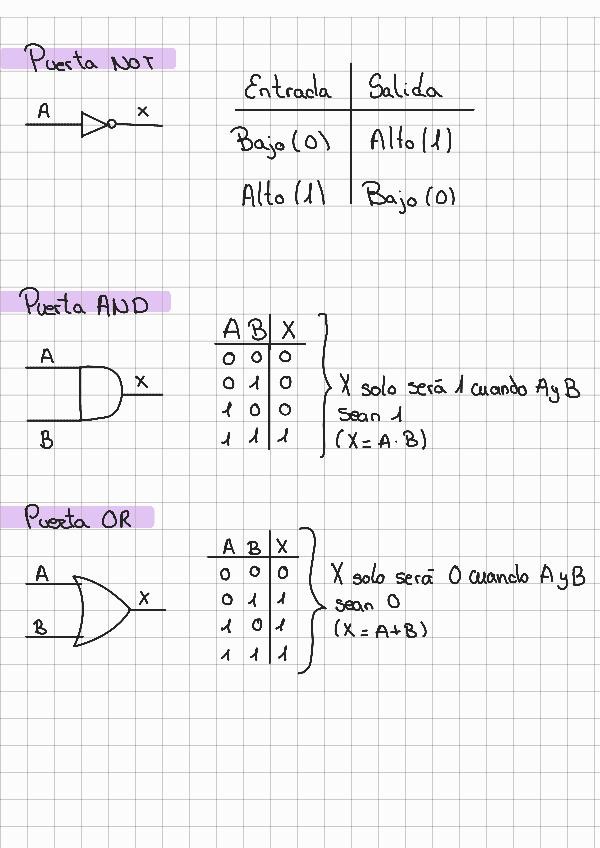 Puerta NOT
A X
Entrada Salida
Bajo (0) Alto (1)
Alto (1) Bajo (0)
Puerta AND
A
B
X
A B X
0 0 0
0 1 0
1 0 0
1 1 1
X solo será 1 cuando A y B
sean 1
(X = A · B)
Puerta OR
A
B
X
A B X
0 0 0
0 1 1
1 0 1
1 1 1
X solo será 0 cuando A y B
sean 0
(X = A + B)